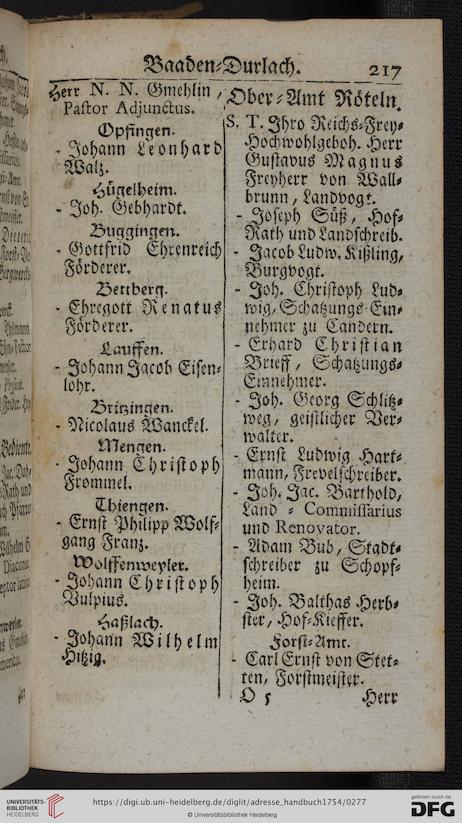 Baaden-Durlach. 217
Herr N. N. Gmehlin,
Pastor Adjunctus.
Opfingen.
- Johann Leonhard
Walz.
Hügelheim.
- Joh. Gebhardt.
Buggingen.
- Gottfrid Ehrenreich
Förderer.
Bettberg.
- Ehregott Renatus
Förderer.
Lauffen.
- Johann Jacob Eisen-
lohr.
Britzingen.
- Nicolaus Wanckel.
Mengen.
- Johann Christoph
Frommel.
Thiengen.
- Ernst Philipp Wolf-
gang Franz.
Wolffenweyler.
- Johann Christoph
Vulpius.
Haßlach.
- Johann Wilhelm
Hitzig.
Ober-Amt Röteln.
S. T. Ihro Reichs-Frey-
Hochwohlgeboh. Herr
Gustavus Magnus
Freyherr von Wall-
brunn, Landvogt.
- Joseph Süß, Hof-
Rath und Landschreib.
- Jacob Ludw. Kißling,
Burgvogt.
- Joh. Christoph Lud-
wig, Schatzungs-Ein-
nehmer zu Candern.
- Erhard Christian
Brieff, Schatzungs-
Einnehmer.
- Joh. Georg Schlitz-
weg, geistlicher Ver-
walter.
- Ernst Ludwig Hart-
mann, Frevelschreiber.
- Joh. Jac. Barthold,
Land-Commissarius
und Renovator.
- Adam Bub, Stadt-
schreiber zu Schopf-
heim.
- Joh. Balthas Herb-
ster, Hof-Kieffer.
Forst-Amt.
- Carl Ernst von Stet-
ten, Forstmeister.
O 5 Herr
UNIVERSITÄTS-
BIBLIOTHEK
HEIDELBERG
https://digi.ub.uni-heidelberg.de/diglit/adresse_handbuch1754/0277
© Universitätsbibliothek Heidelberg
gefördert durch die
DFG